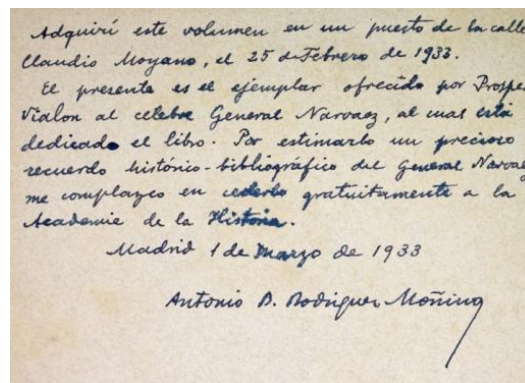 Adquirí este volumen en un puesto de la calle
Claudio Moyano, el 25 de Febrero de 1933.
El presente es el ejemplar ofrecido por Prosper
Vialon al célebre General Narvaez, al cual está
dedicado el libro. Por estimarlo un precioso
recuerdo histórico-bibliográfico del General Narvaez
me complazco en cederlo gratuitamente a la
Academia de la Historia.
Madrid 1 de Marzo de 1933
Antonio R. Rodriguez Moñino